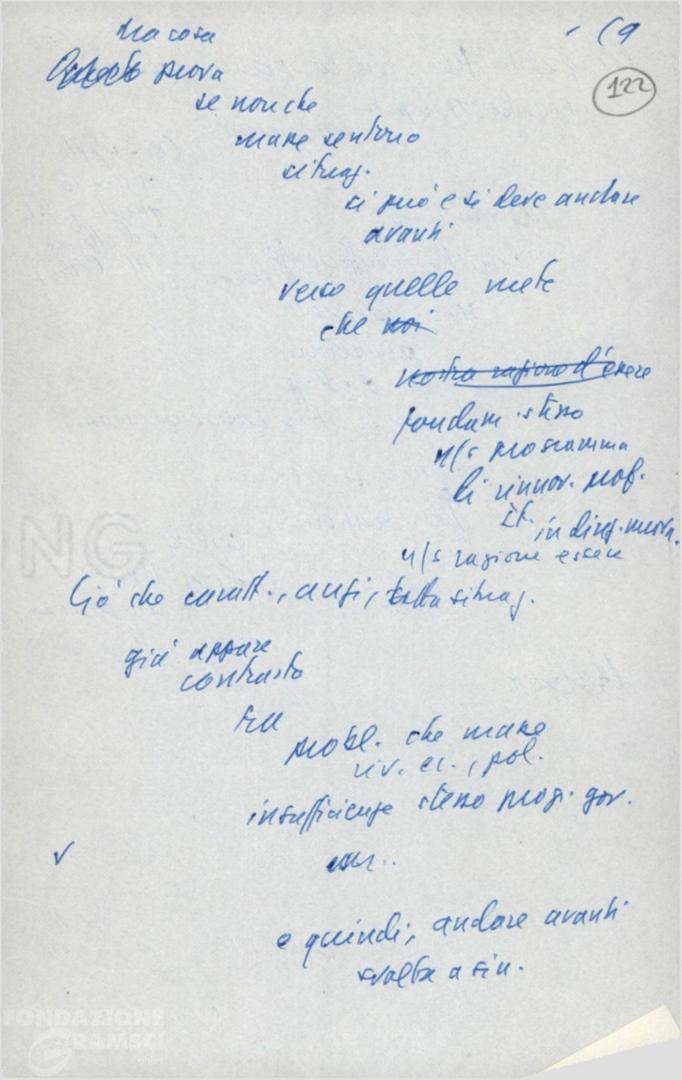 Ma cosa
prova
se non che
masse sentono
situaz.
si può e si deve andare
avanti
verso quelle mete
che noi
nostra ragione d'essere
fondam. stesso
n/s programma
di rinnov. prof.
in direz. nuova.
n/s ragione essere
Ciò che caratt., anzi, tutta situaz.
già appare
contrasto
fra
probl. che masse
riv. ec., pol.
insufficienze stesso progr. gov.
e quindi, andare avanti
svolta a sin.
122
FONDAZIONE
GRAMSCI